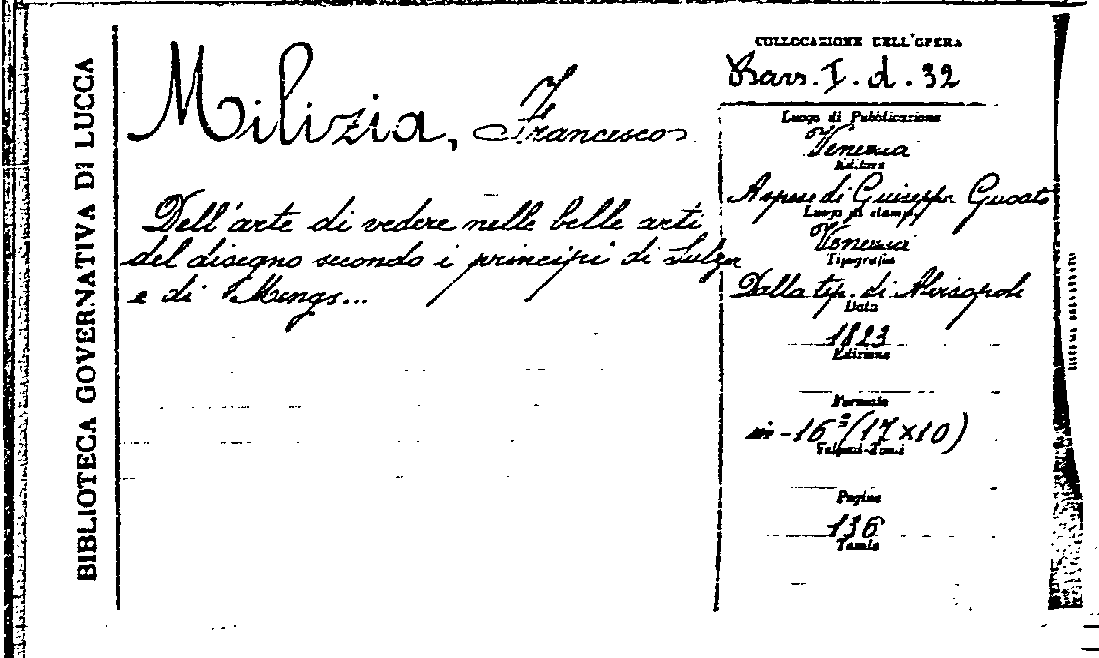 BIBLIOTECA GOVERNATIVA DI LUCCA
Milizia, Francesco
Dell'arte di vedere nelle belle arti
del disegno secondo i principi di Sulzer
e di Mengs...
COLLOCAZIONE DELL'OPERA
I. d. 32
Luogo di Pubblicazione
Venezia
Editore
A spese di Giuseppe
Luogo di stampa
Venezia
Tipografia
Dalla tip. di Alvisopoli
Data
1823
Edizione
Formato
in-16º (17×10)
Volumi-Tomi
Pagine
136
Tavole